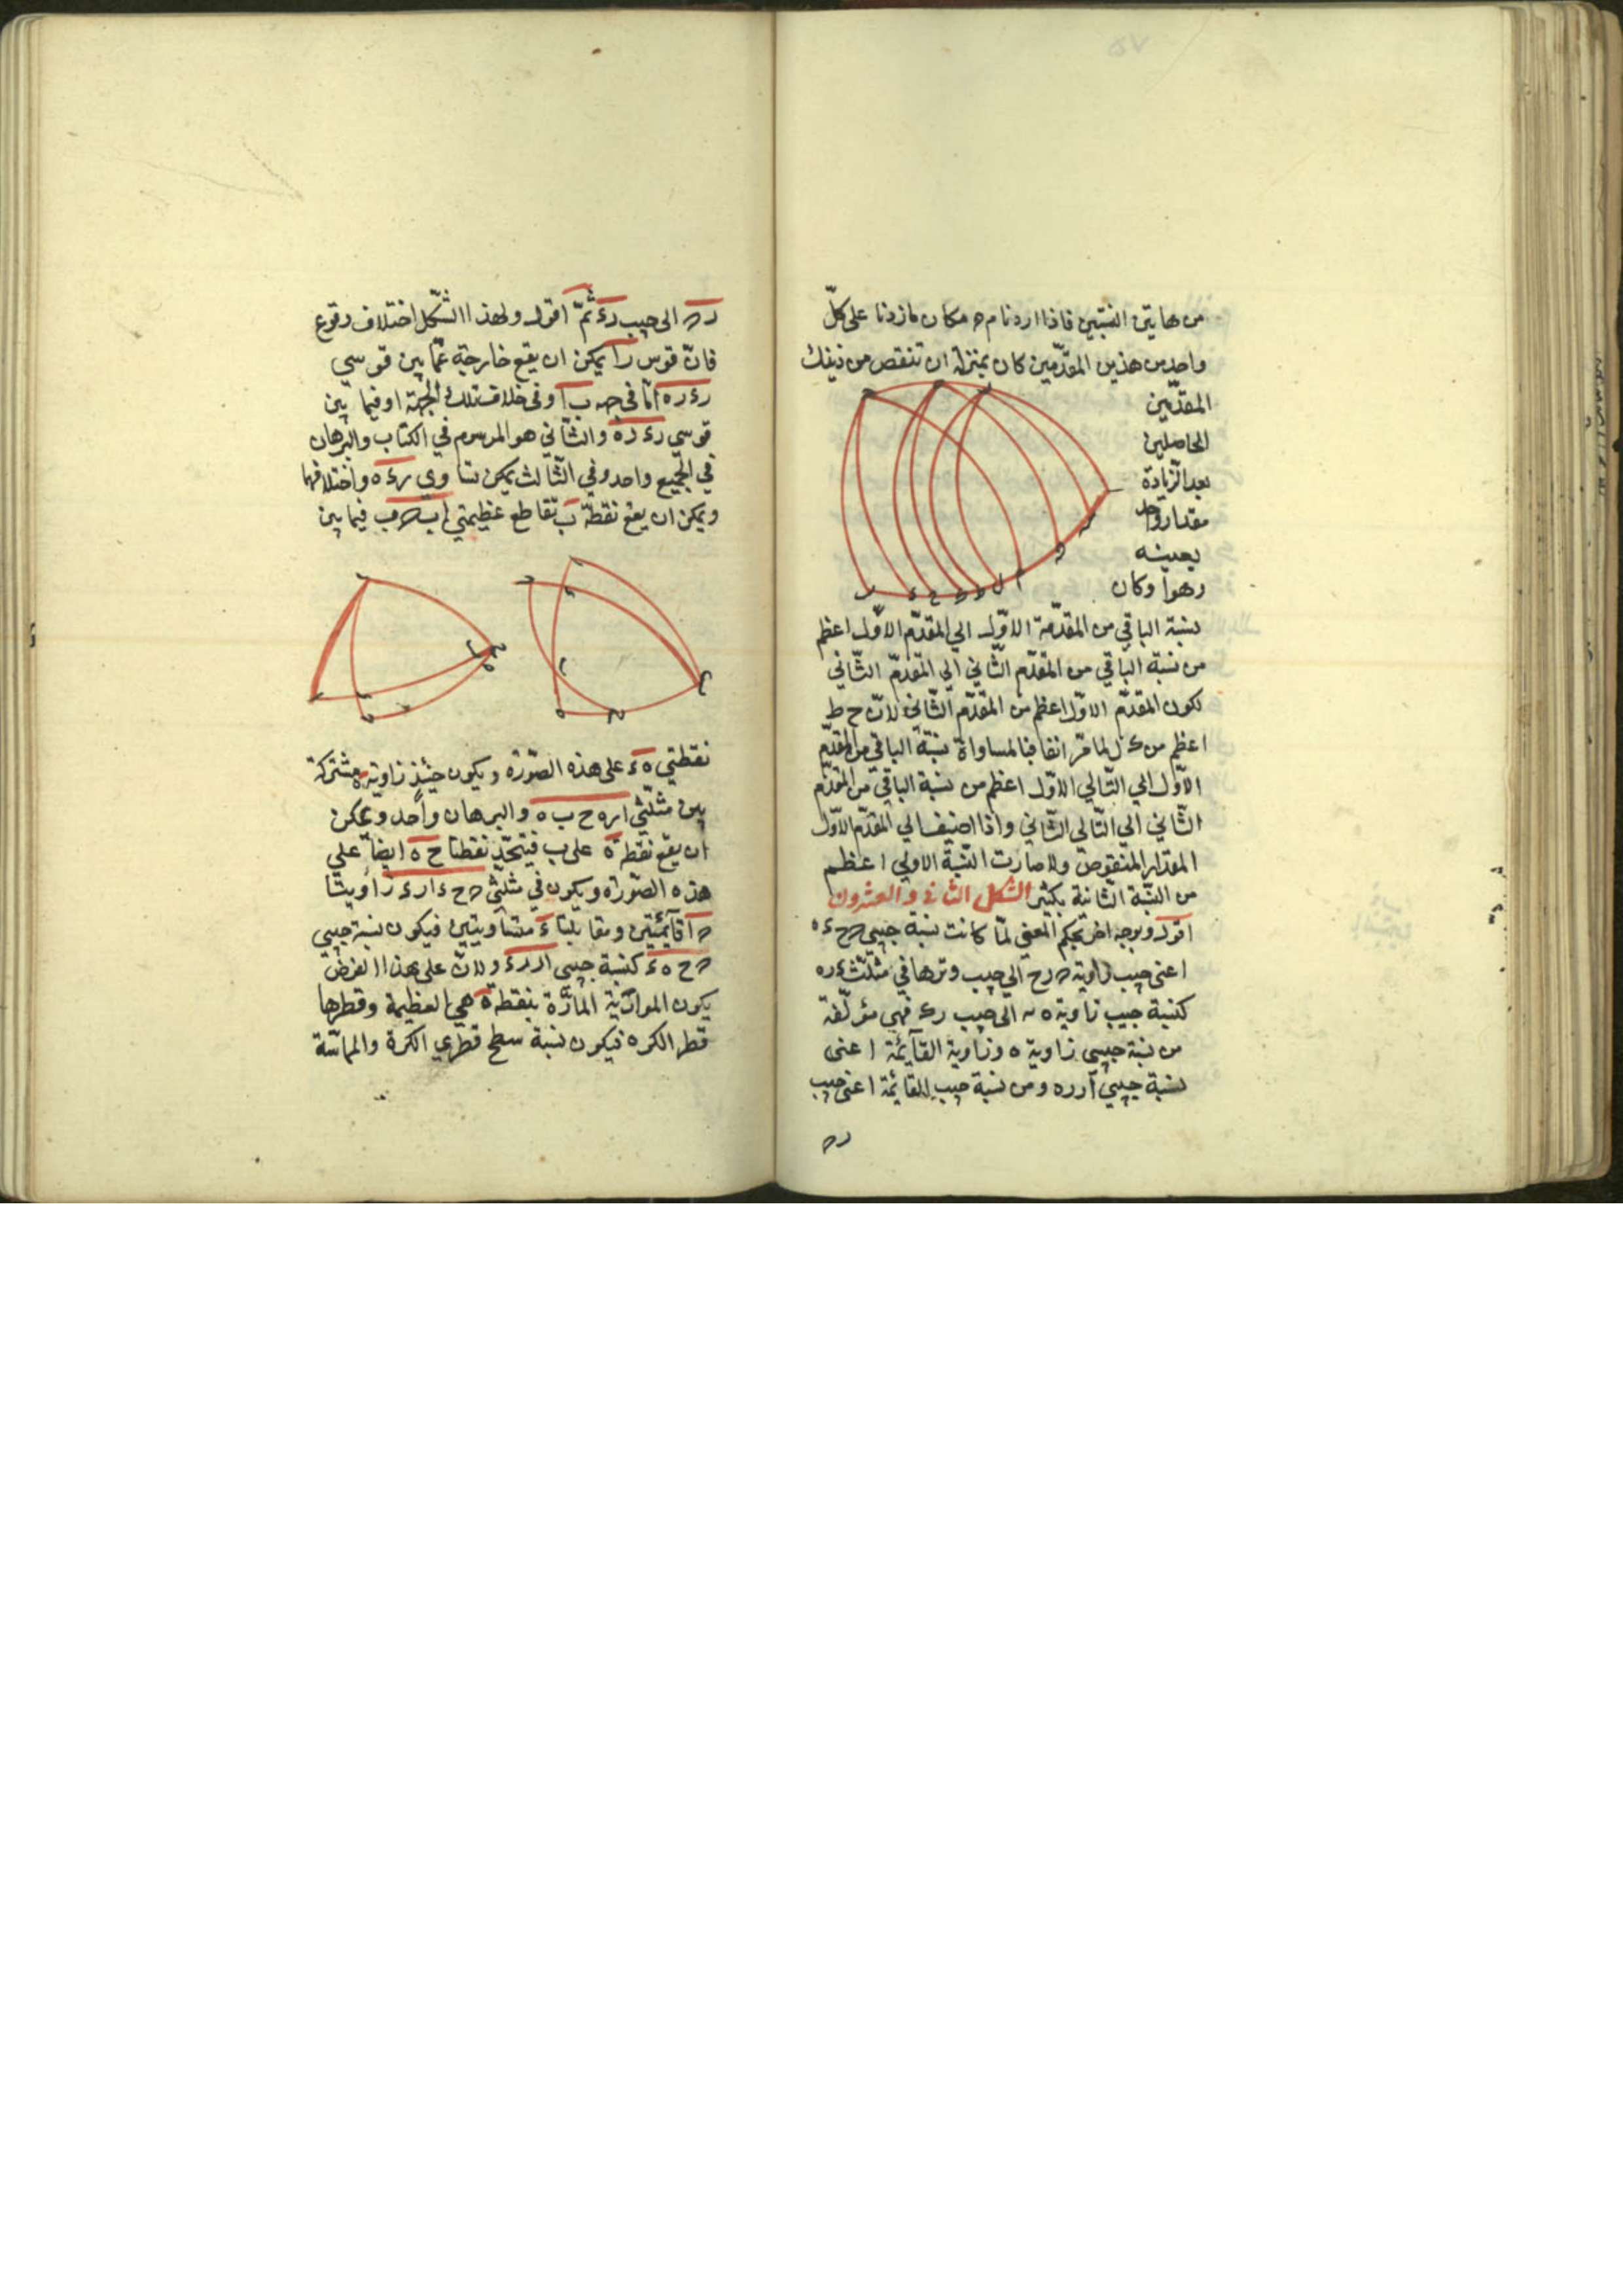 من هاتين النسبتين فاذا اردنا م ه مكان ما زدنا على كلّ
واحد من هذين المقدّمين كان بمنزلة ان تنقص من ذينك
المقدّمين
الحاصلين
بعد الزّيادة
مقدار واحد
بعينه
وهو ا وكان
نسبة الباقي من المقدّمة الاوّل الي المقدّم الاوّل اعظم
من نسبة الباقي من المقدّم الثّاني الي المقدّم الثّاني
لكون المقدّم الاوّل اعظم من المقدّم الثّاني لانّ ح ط
اعظم من ك ل لما مرّ انفا فبالمساواة نسبة الباقي من المقدّم
الاوّل الي التّالي الاوّل اعظم من نسبة الباقي من المقدّم
الثّاني الي التّالي الثّاني واذا اضيف الي المقدّم الاوّل
المقدار المنقوص ولا صارت النّسبة الاولي اعظم
من النّسبة الثّانية بكثير الشكل الثاني والعشرون
اقول وبوجه اخر بحكم المغني لمّا كانت نسبة جيبي ح ء ه
اعني جيب زاوية ح الي جيب وترها في مثلّث ء ر ه
كنسبة جيب زاوية ه الى جيب ر ء فهي مؤلّفة
من نسبة جيبي زاوية ه وزاوية القآئمة اعنى
نسبة جيبي ا ر ر ه ومن نسبة جيب القائمة اعني جيب
ر ح
ر ح الى جيب ر ء ثمّ اقول ولهذا الشّكل اختلاف وقوع
فانّ قوس ر ا يمكن ان يقع خارجة عمّا بين قوسي
ر ء ر ه امّا في جهة ب ا وفي خلاف تلك الجهة او فيما بين
قوسي ر ء ر ه والثّاني هو المرسوم في الكتاب والبرهان
في الجميع واحد وفي الثّالث يمكن تساوي ر ء ر ه واختلافهما
ويمكن ان يقع نقطة ب تقاطع عظيمتي ا ب ح ب فيما بين
نقطتي ه ء على هذه الصّورة ويكون حينئذ زاوية ه مشتركة
بين مثلّثي ا ر ه ح ب ه والبرهان واحد ويمكن
ان يقع نقطة ه على ب فيتّحد نقطتا ح ه ايضاً علي
هذه الصّورة ويكون في مثلّثي ح ء ا ر ء زاويتا
ح ا قآئمتين ومقابلتا ء متساويتين فيكون نسبة جيبي
ح ه ء كنسبة جيبي ا ر ر ء ولانّ على هذا الفرض
يكون الموازية المارّة بنقطة ه هي العظيمة وقطرها
قطر الكره فيكون نسبة سطح قطري الكرة والمماسّة